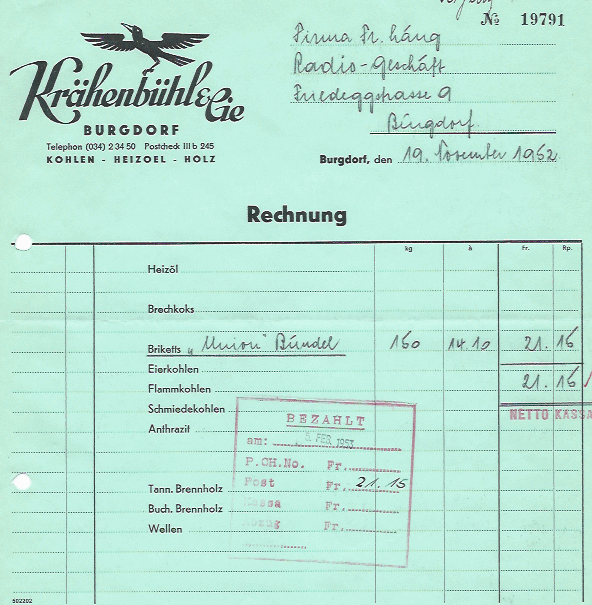 № 19791
Krähenbühl & Cie
BURGDORF
Telephon (034) 2 34 50 Postcheck III b 245
KOHLEN - HEIZOEL - HOLZ
Firma Fr. Läng
Radio-Geschäft
Friedeggstrasse 9
Burgdorf
Burgdorf, den 19. November 1952
Rechnung
kg à Fr. Rp.
Heizöl
Brechkoks
Briketts "Union" Bündel 150 14.10 21. 15
Eierkohlen
Flammkohlen 21. 15
Schmiedekohlen NETTO KASSA
Anthrazit
BEZAHLT
am: FEB. 1953
P.CH.No. Fr.
Tann. Brennholz Post Fr. 21.15
Buch. Brennholz Kassa Fr.
Wellen Fr.
502202